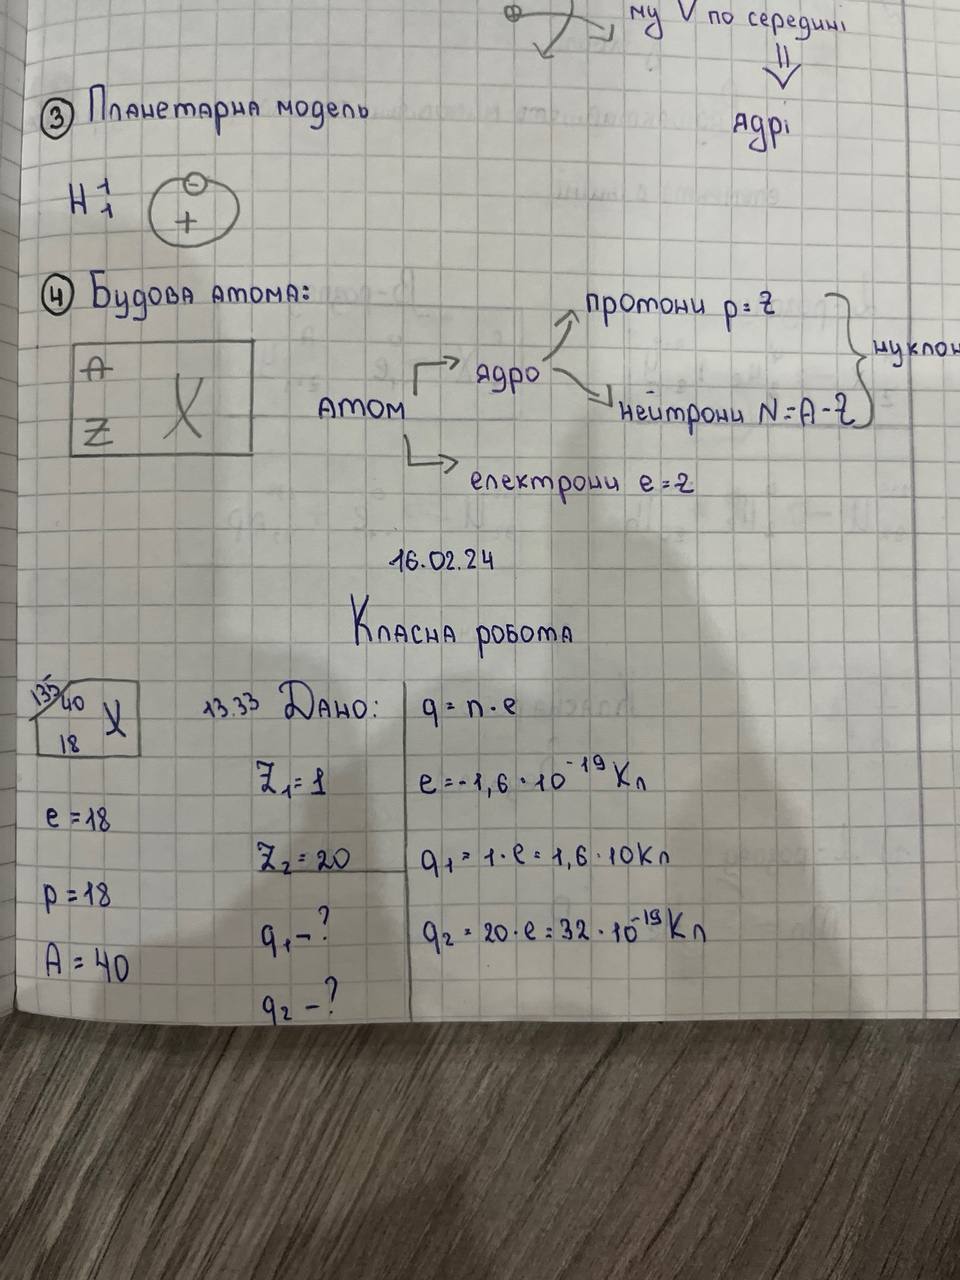 му V по середині
⇓
ядрі
③ Планетарна модель
H 1 1
−
+
④ Будова атома:
A
Z X
атом
ядро
протони p=Z
нейтрони N=A-Z
електрони e=z
16.02.24
Класна робота
135
40
18 X
e=18
p=18
A=40
13.33 Дано:
Z₁=1
Z₂=20
q₁-?
q₂-?
q=n·e
e=-1,6·10⁻¹⁹Кл
q₁=1·e=1,6·10Кл
q₂=20·e=32·10⁻¹⁹Кл